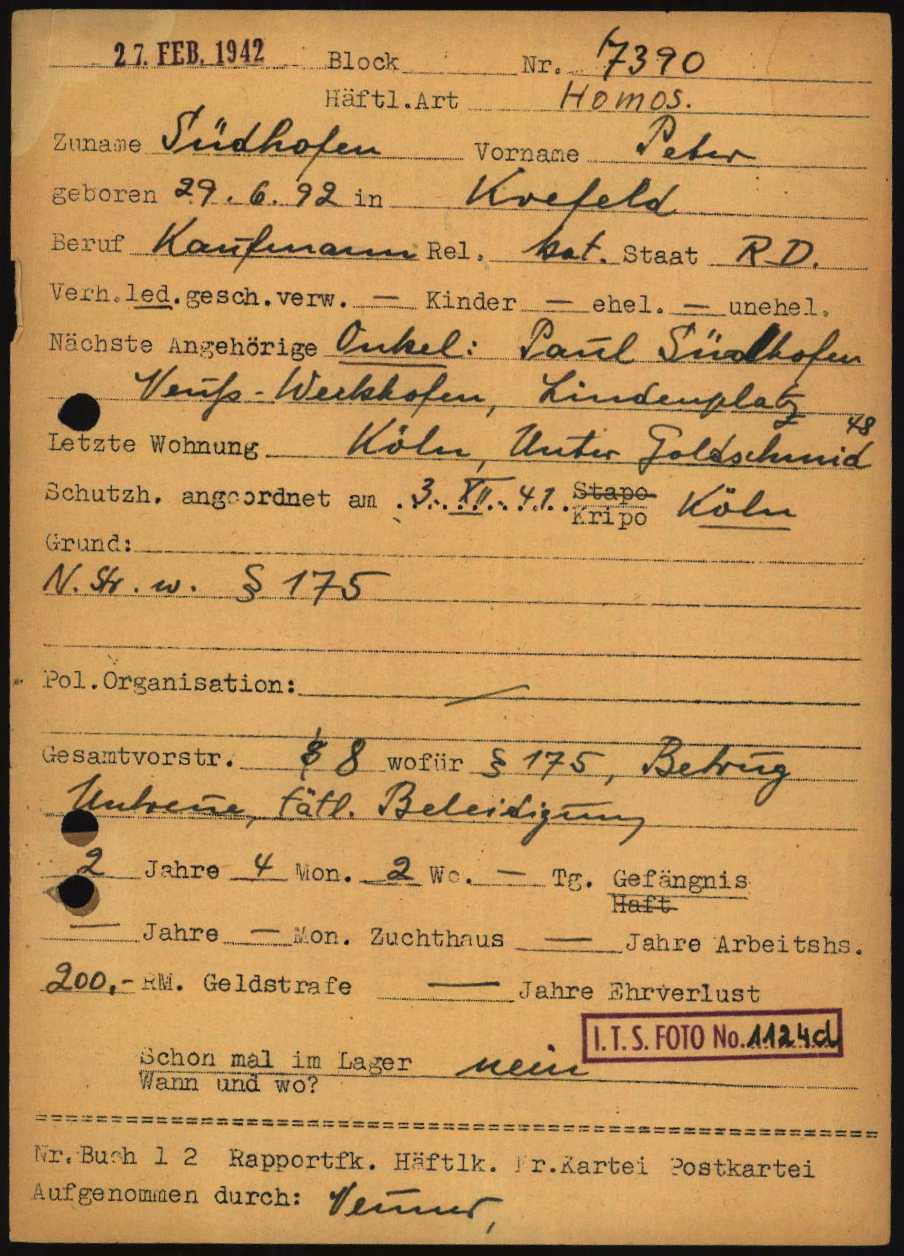 27. FEB. 1942 Block Nr. 7390
Häftl.Art Homos.
Zuname Südhofen Vorname Peter
geboren 29.6.92 in Krefeld
Beruf Kaufmann Rel. kat. Staat R.D.
Verh.led.gesch.verw. — Kinder — ehel. — unehel.
Nächste Angehörige Onkel: Paul Südhofen
Neuß-Weckhofen, Lindenplatz
48
Letzte Wohnung Köln, Unter Goldschmid
Schutzh. angeordnet am 3. XII. 41. Stapo
Kripo Köln
Grund:
N. Str. w. § 175
Pol.Organisation: /
Gesamtvorstr. 8 wofür § 175, Betrug
Untreue, tätl. Beleidigung
2 Jahre 4 Mon. 2 Wo. — Tg. Gefängnis
Haft
— Jahre — Mon. Zuchthaus — Jahre Arbeitshs.
200,- RM. Geldstrafe — Jahre Ehrverlust
I.T.S. FOTO No. 1124d
Schon mal im Lager nein
Wann und wo?
Nr.Buch 1 2 Rapportfk. Häftlk. Fr.Kartei Postkartei
Aufgenommen durch: